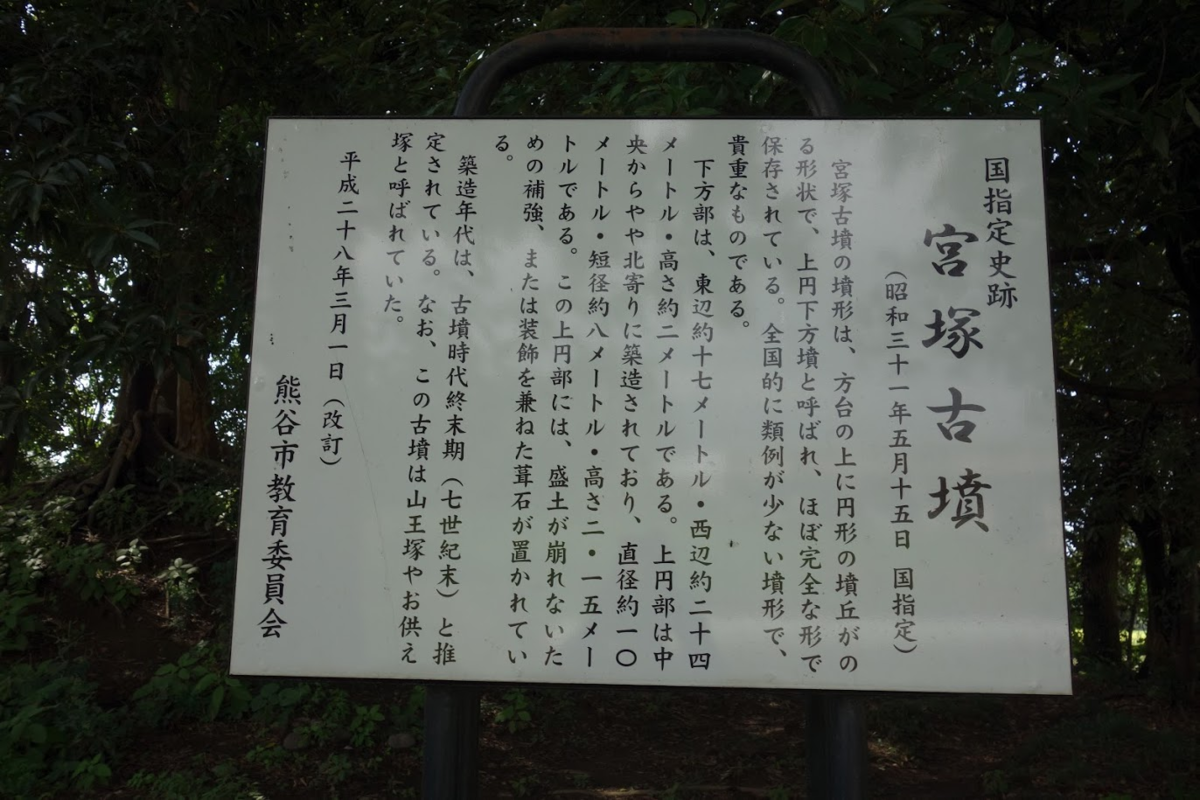 国指定史跡
宮塚古墳
（昭和三十一年五月十五日　国指定）
宮塚古墳の墳形は、方台の上に円形の墳丘がの
る形状で、上円下方墳と呼ばれ、ほぼ完全な形で
保存されている。全国的に類例が少ない墳形で、
貴重なものである。
下方部は、東辺約十七メートル・西辺約二十四
メートル・高さ約二メートルである。上円部は中
央からやや北寄りに築造されており、直径約一〇
メートル・短径約八メートル・高さ二・一五メー
トルである。この上円部には、盛土が崩れないた
めの補強、または装飾を兼ねた葺石が置かれてい
る。
築造年代は、古墳時代終末期（七世紀末）と推
定されている。なお、この古墳は山王塚やお供え
塚と呼ばれていた。
平成二十八年三月一日（改訂）
熊谷市教育委員会